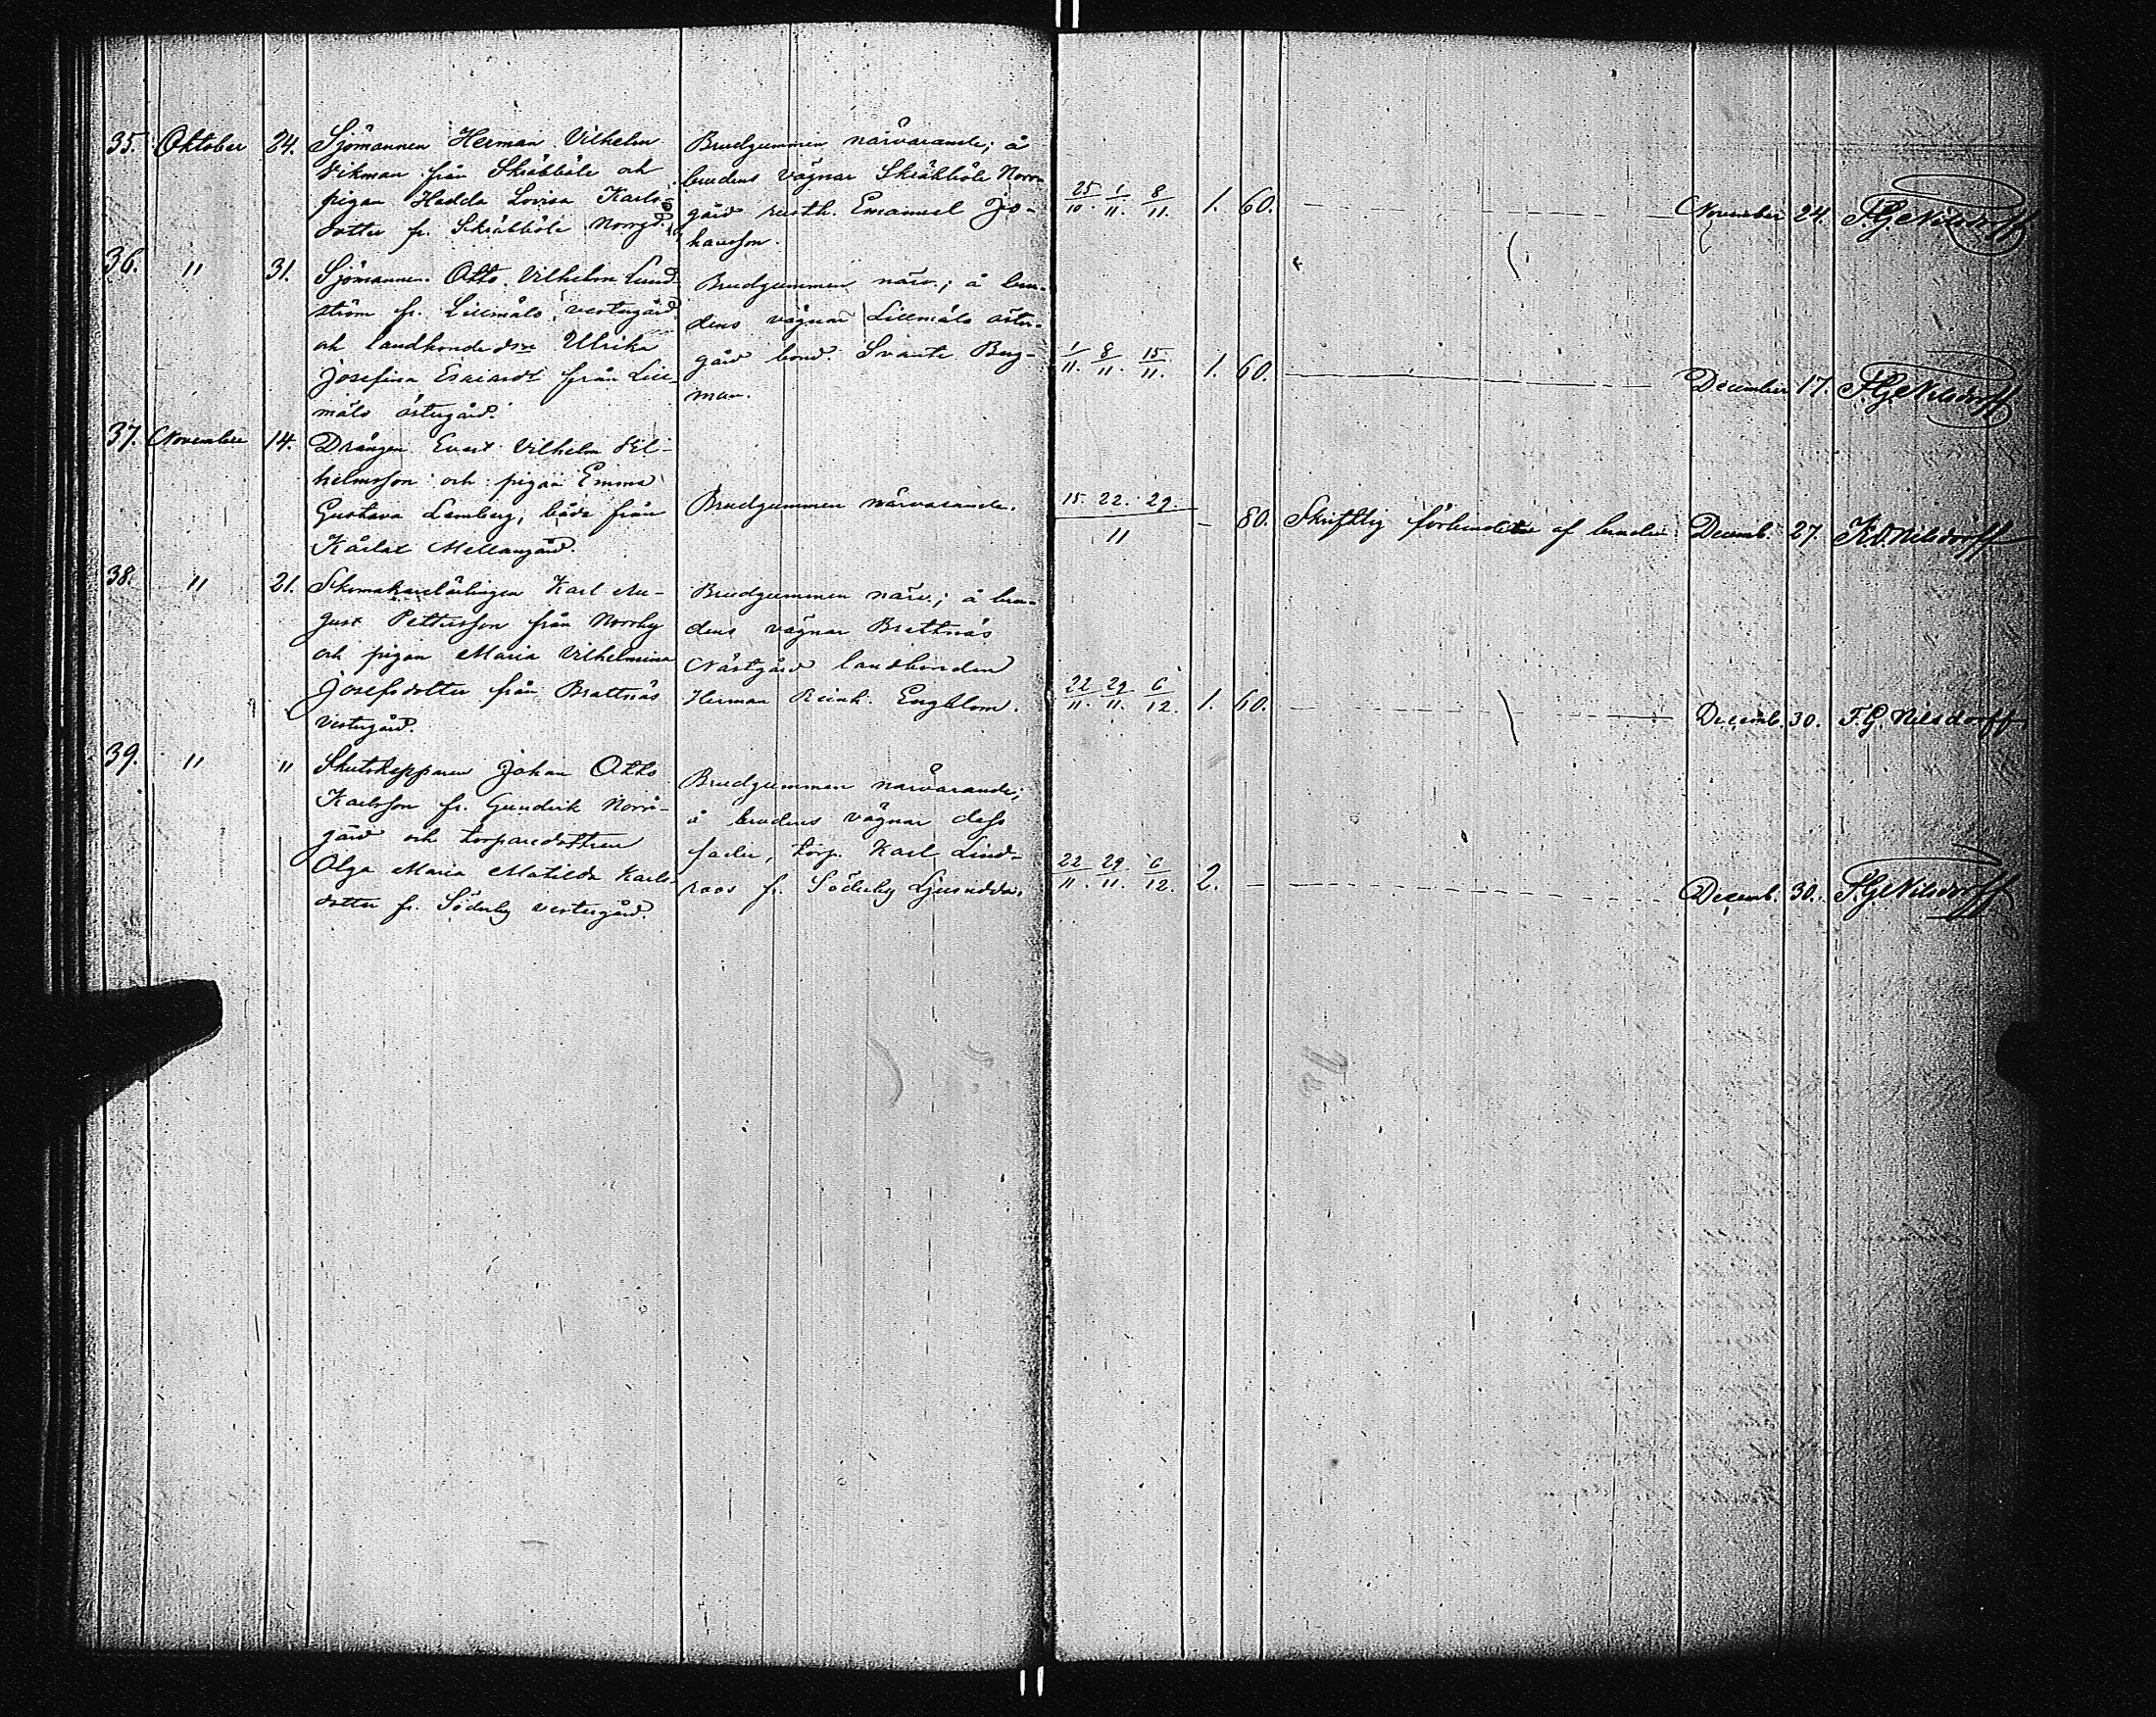 35. Oktober 24. Sjömannen Herman Vilhelm
Vikman från Skräbböle och
pigan Hedda Lovisa Karls-
dotter fr. Skräbböle Norrgd.
Brudgummen närvarande; å
brudens vägnar Skräbböle Norr-
gård rusth. Emanuel Jo-
hansson.
25/10. 1/11. 8/11. 1. 60. November 24. F. G. Nilsdorff
36. " 31. Sjömannen Otto Vilhelm Lund-
ström fr. Lillmälö vestergård
och landbonde Ulrika
Josefina från Lill-
mälö östergård.
Brudgummen närv.; å bru-
dens vägnar Lillmälö öster-
gård bond. Svante Berg-
man.
1/11. 8/11. 15/11. 1. 60. December 17. F. G. Nilsdorff
37. November 14. Drängen Evert Vilhelm Vil-
helmsson och pigan Emma
Gustava Lemberg, båda från
Kårlax Mellangård.
Brudgummen närvarande.
15. 22. 29.
11
- 80. Skriftlig af bruden Decemb. 27. Nilsdorff
38. " 21. Skomakarelärlingen Karl Au-
gust Pettersson från Norrby
och pigan Maria Vilhelmina
Josefsdotter från Brattnäs
Vestergård.
Brudgummen närv.; å bru-
dens vägnar Brattnäs
Västgård landbonden
Herman Reinh. Engblom.
22/11. 29/11. 6/12. 1. 60. Decemb. 30. F. G. Nilsdorff
39. " " Skutskepparen Johan Otto
Karlsson fr. Gundvik Norr-
gård och torparedottren
Olga Maria Matilda Karls-
dotter fr. Söderby vestergård.
Brudgummen närvarande;
å brudens vägnar dess
fader, torp. Karl Lind-
roos fr. Söderby Ljusudda.
22/11. 29/11. 6/12. 2. - Decemb. 30. F. G. Nilsdorff